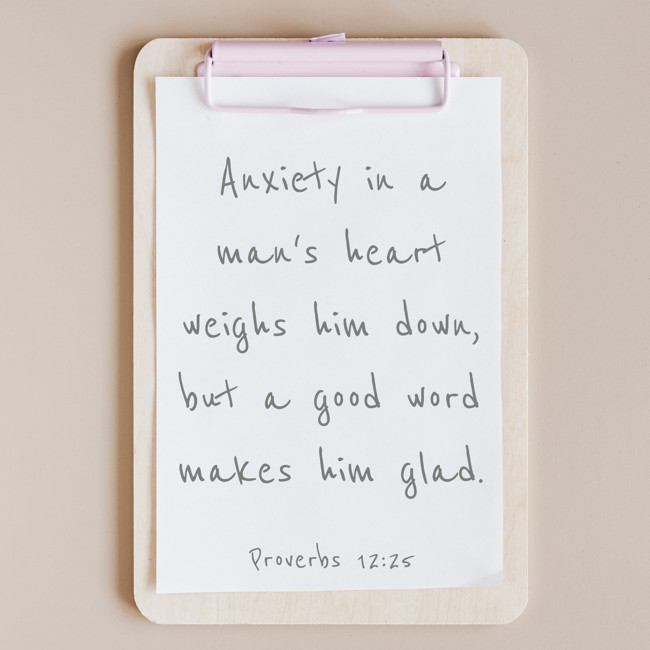 Anxiety in a
man's heart
weighs him down,
but a good word
makes him glad.
Proverbs 12:25